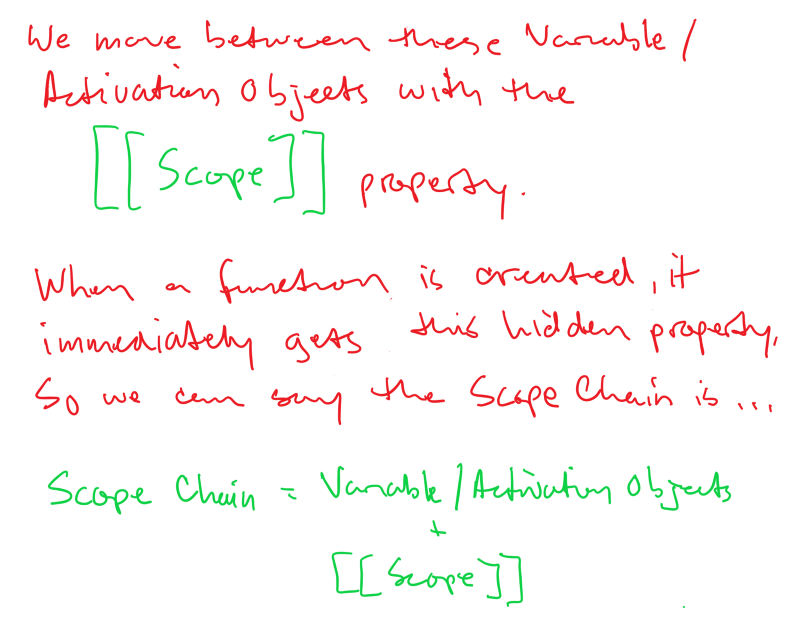 We move between these Variable/
Activation Objects with the
[[Scope]] property.
When a function is created, it
immediately gets this hidden property,
So we can say the Scope Chain is ...
Scope Chain = Variable/Activation Objects
+
[[Scope]]